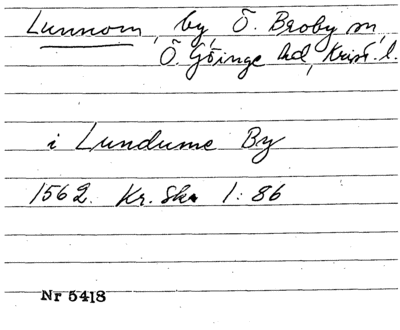 Lunnom, by, Ö. Broby sn,
Ö. Göinge hd, Krist. l.
i Lundume By
1562. Kr. Ska 1: 86
Nr 5418